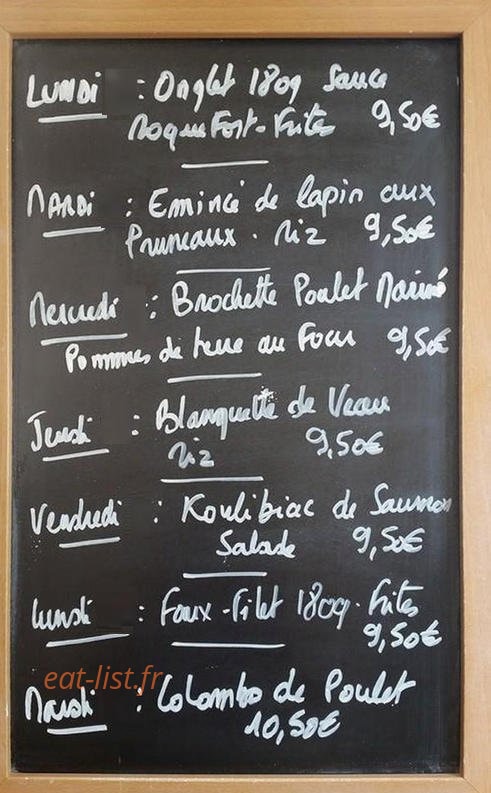 LUNDI : Onglet 180g Sauce
Roquefort - Frites 9,50€
MARDI : Emincé de lapin aux
Pruneaux - Riz 9,50€
Mercredi : Brochette Poulet Mariné
Pommes de terre au Four 9,50€
Jeudi : Blanquette de Veau
Riz 9,50€
Vendredi : Koulibiac de Saumon
Salade 9,50€
Lundi : Faux-Filet 180g - Frites
9,50€
Mardi : Colombo de Poulet
eat-list.fr
10,50€